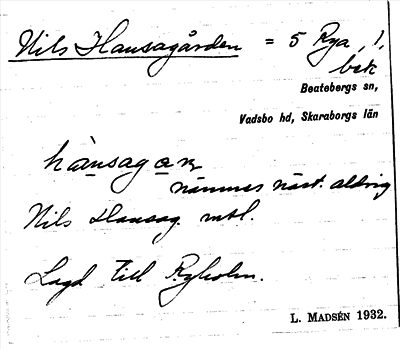 Nils Hansagården = 5 Rya, 1,
bsk
Beatebergs sn,
Vadsbo hd, Skaraborgs län
hànsagan
nämnes näst. aldrig
Nils Hansag. mtl.
Lagd till Ryholm.
L. MADSÉN 1932.